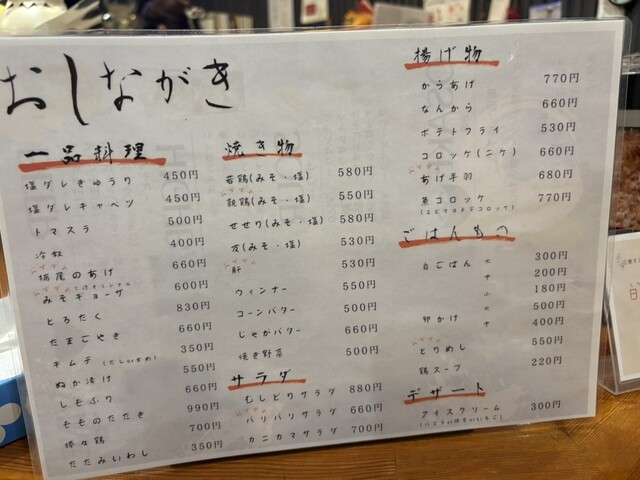 おしながき
一品料理
塩ダレきゅうり 450円
塩ダレキャベツ 450円
トマスラ 500円
冷奴 400円
栃尾のあげ 660円
みそギョーザ 600円
とろたく 830円
たまごやき 660円
キムチ 350円
ぬか漬け 550円
しそぶり 660円
そそのたたき 990円
棒々鶏 700円
たたみいわし 350円
焼き物
若鶏(みそ・塩) 580円
親鶏(みそ・塩) 550円
せせり(みそ・塩) 580円
皮(みそ・塩) 530円
肝 530円
ウィンナー 550円
コーンバター 500円
じゃがバター 660円
焼き野菜 500円
サラダ
むしどりサラダ 880円
バリバリサラダ 660円
カニカマサラダ 700円
揚げ物
からあげ 770円
なんから 660円
ポテトフライ 530円
コロッケ(ニケ) 660円
あげ手羽 680円
魚コロッケ 770円
ごはんもの
白ごはん 大 300円
中 200円
小 180円
卵かけ 大 500円
中 400円
とりめし 550円
鶏スープ 220円
デザート
アイスクリーム 300円